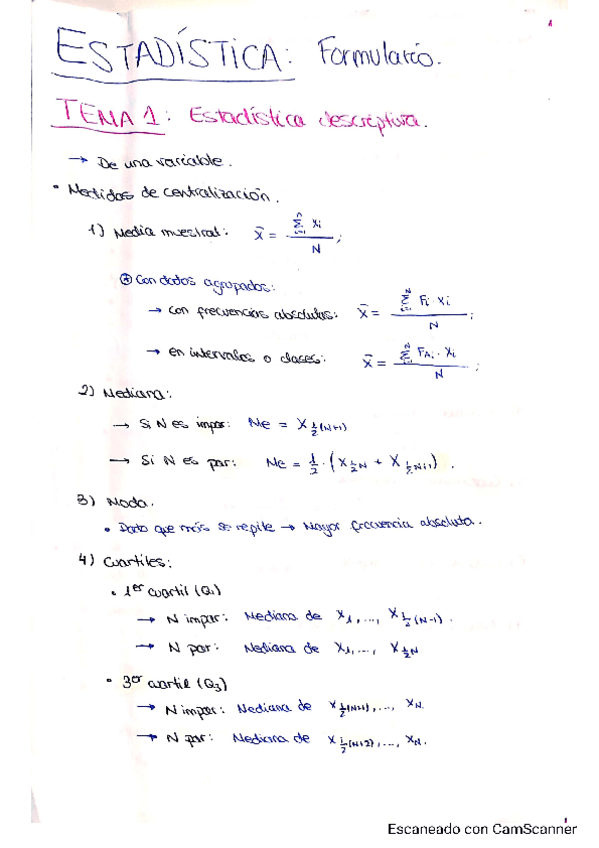 ESTADÍSTICA: Formulario.
TEMA 1: Estadística descriptiva.
→ De una variable.
• Medidas de centralización.
1) Media muestral: x̄ = Σⁿᵢ₌₁ xi / N ;
⊛ Con datos agrupados:
→ con frecuencias absolutas: x̄ = Σᴺᵢ₌₁ Fi · xi / N ;
→ en intervalos o clases: x̄ = Σᴺᵢ₌₁ FAi · xi / N ;
2) Mediana:
→ Si N es impar: Me = X ½(N+1)
→ Si N es par: Me = ½ · (X ½N + X ½N+1) .
3) Moda.
• Dato que más se repite → Mayor frecuencia absoluta.
4) Cuartiles:
• 1er cuartil (Q1)
→ N impar: Mediana de X1, ..., X ½(N-1) .
→ N par: Mediana de X1, ..., X ½N
• 3er cuartil (Q3)
→ N impar: Mediana de X ½(N+1), ..., XN.
→ N par: Mediana de X ½(N+2), ..., XN.
Escaneado con CamScanner